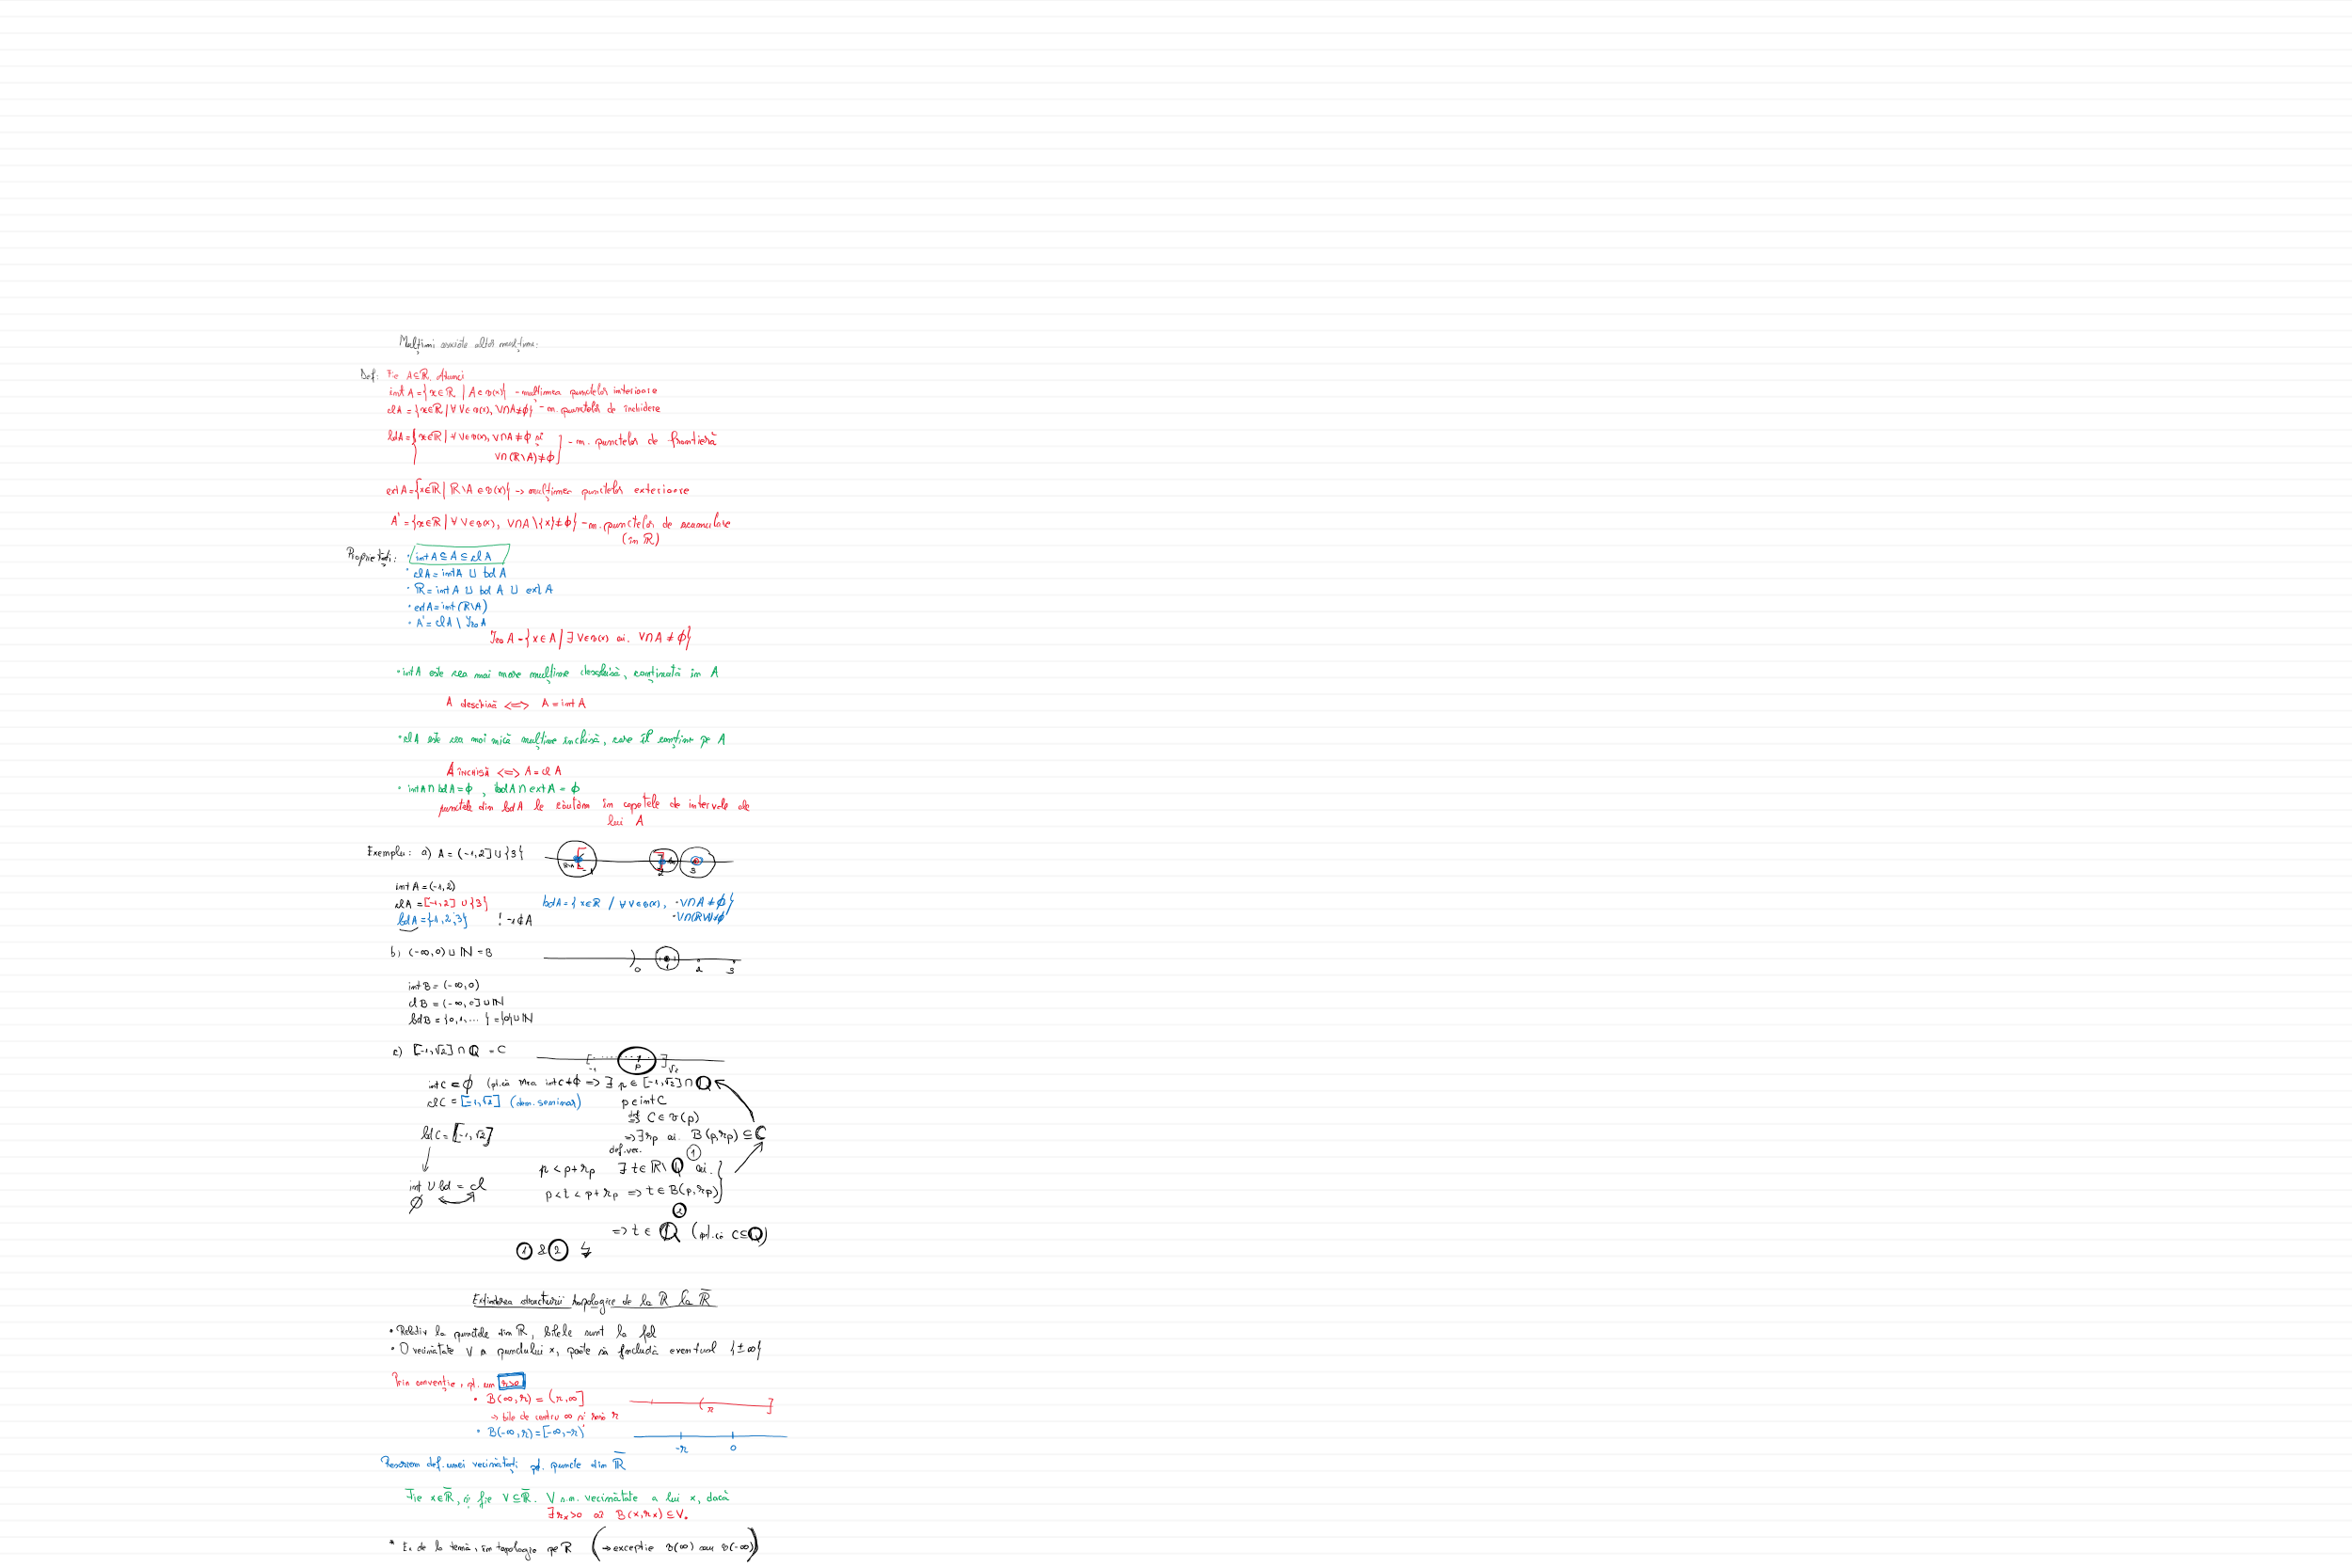 Mulțimi asociate altor mulțimi:
Def: Fie A⊆ℝ. Atunci
int A = {x∈ℝ | A∈𝒱(x)} - mulțimea punctelor interioare
cl A = {x∈ℝ | ∀ V∈𝒱(x), V∩A≠ϕ} - m. punctelor de închidere
bd A = {x∈ℝ | ∀ V∈𝒱(x), V∩A≠ϕ și
V∩(ℝ\A)≠ϕ} - m. punctelor de frontieră
ext A = {x∈ℝ | ℝ\A ∈𝒱(x)} -> mulțimea punctelor exterioare
A' = {x∈ℝ | ∀ V∈𝒱(x), V∩A\{x}≠ϕ} - m. punctelor de acumulare
(în ℝ)
Proprietăți: • int A ⊆ A ⊆ cl A
• cl A = int A ∪ bd A
• ℝ = int A ∪ bd A ∪ ext A
• ext A = int (ℝ\A)
• A' = cl A \ Izo A
Izo A = {x∈A | ∃ V∈𝒱(x) aî. V∩A ≠ ϕ}
• int A este cea mai mare mulțime deschisă, conținută în A
A deschisă <=> A = int A
• cl A este cea mai mică mulțime închisă, care îl conține pe A
A închisă <=> A = cl A
• int A ∩ bd A = ϕ , bd A ∩ ext A = ϕ
punctele din bd A le căutăm în capetele de intervale ale
lui A
Exemplu: a) A = (-1,2] ∪ {3}
-1 2 3
int A = (-1,2)
cl A = [-1,2] ∪ {3}
bd A = {-1,2,3} ! -1∉A
bd A = {x∈ℝ / ∀ V∈𝒱(x), -V∩A ≠ ϕ}
-V∩(ℝ\A)≠ϕ
b) (-∞,0) ∪ ℕ = B
0 1 2 3
int B = (-∞,0)
cl B = (-∞,0] ∪ ℕ
bd B = {0,1,... } = {0}∪ℕ
c) [-1,√2] ∩ ℚ = C
-1 p √2
int C = ϕ (pt. că Dacă int C≠ϕ => ∃ p ∈ [-1,√2] ∩ ℚ
cl C = [-1,√2] (dem. seminar)
p∈int C
def => C∈𝒱(p)
=> ∃ rp aî. B(p,rp) ⊆ C
def. vec.
bd C = [-1,√2]
p < p+rp ∃ t∈ℝ\ℚ aî. ①
p<t<p+rp => t∈B(p,rp)
int ∪ bd = cl
ϕ
②
=> t ∈ ℚ (pt. că C⊆ℚ)
① & ② ↯
Extinderea structurii topologice de la ℝ la ℝ̅
• Relativ la punctele din ℝ, bilele sunt la fel
• O vecinătate V a punctului x, poate să includă eventual {±∞}
Prin convenție, pt. un r>0
• B(∞,r) = (r,∞]
-> bile de centru ∞ și rază r
r
• B(-∞,r) = [-∞,-r)
-r 0
def. unei vecinătăți pt. puncte din ℝ̅
Fie x∈ℝ̅, și fie V⊆ℝ̅. V s.n. vecinătate a lui x, dacă
∃ rx>0 aî B(x,rx) ⊆ V.
* Ex de la temă, în topologie pe ℝ (→ excepție 𝒱(∞) sau 𝒱(-∞))